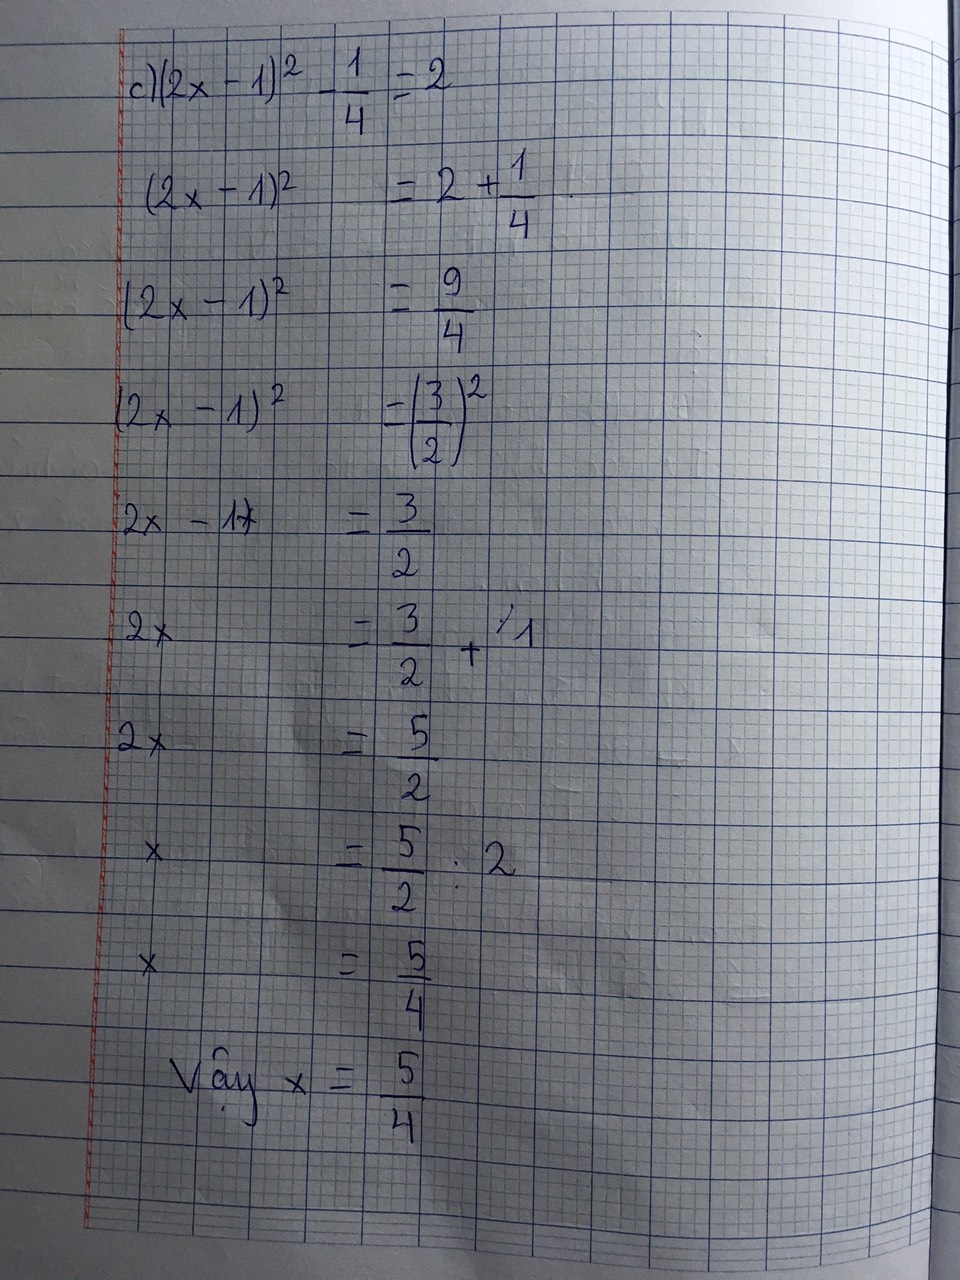 c) (2x - 1)² - 1/4 = 2
(2x - 1)² = 2 + 1/4
(2x - 1)² = 9/4
(2x - 1)² = (3/2)²
2x - 1 = 3/2
2x = 3/2 + 1
2x = 5/2
x = 5/2 : 2
x = 5/4
Vậy x = 5/4